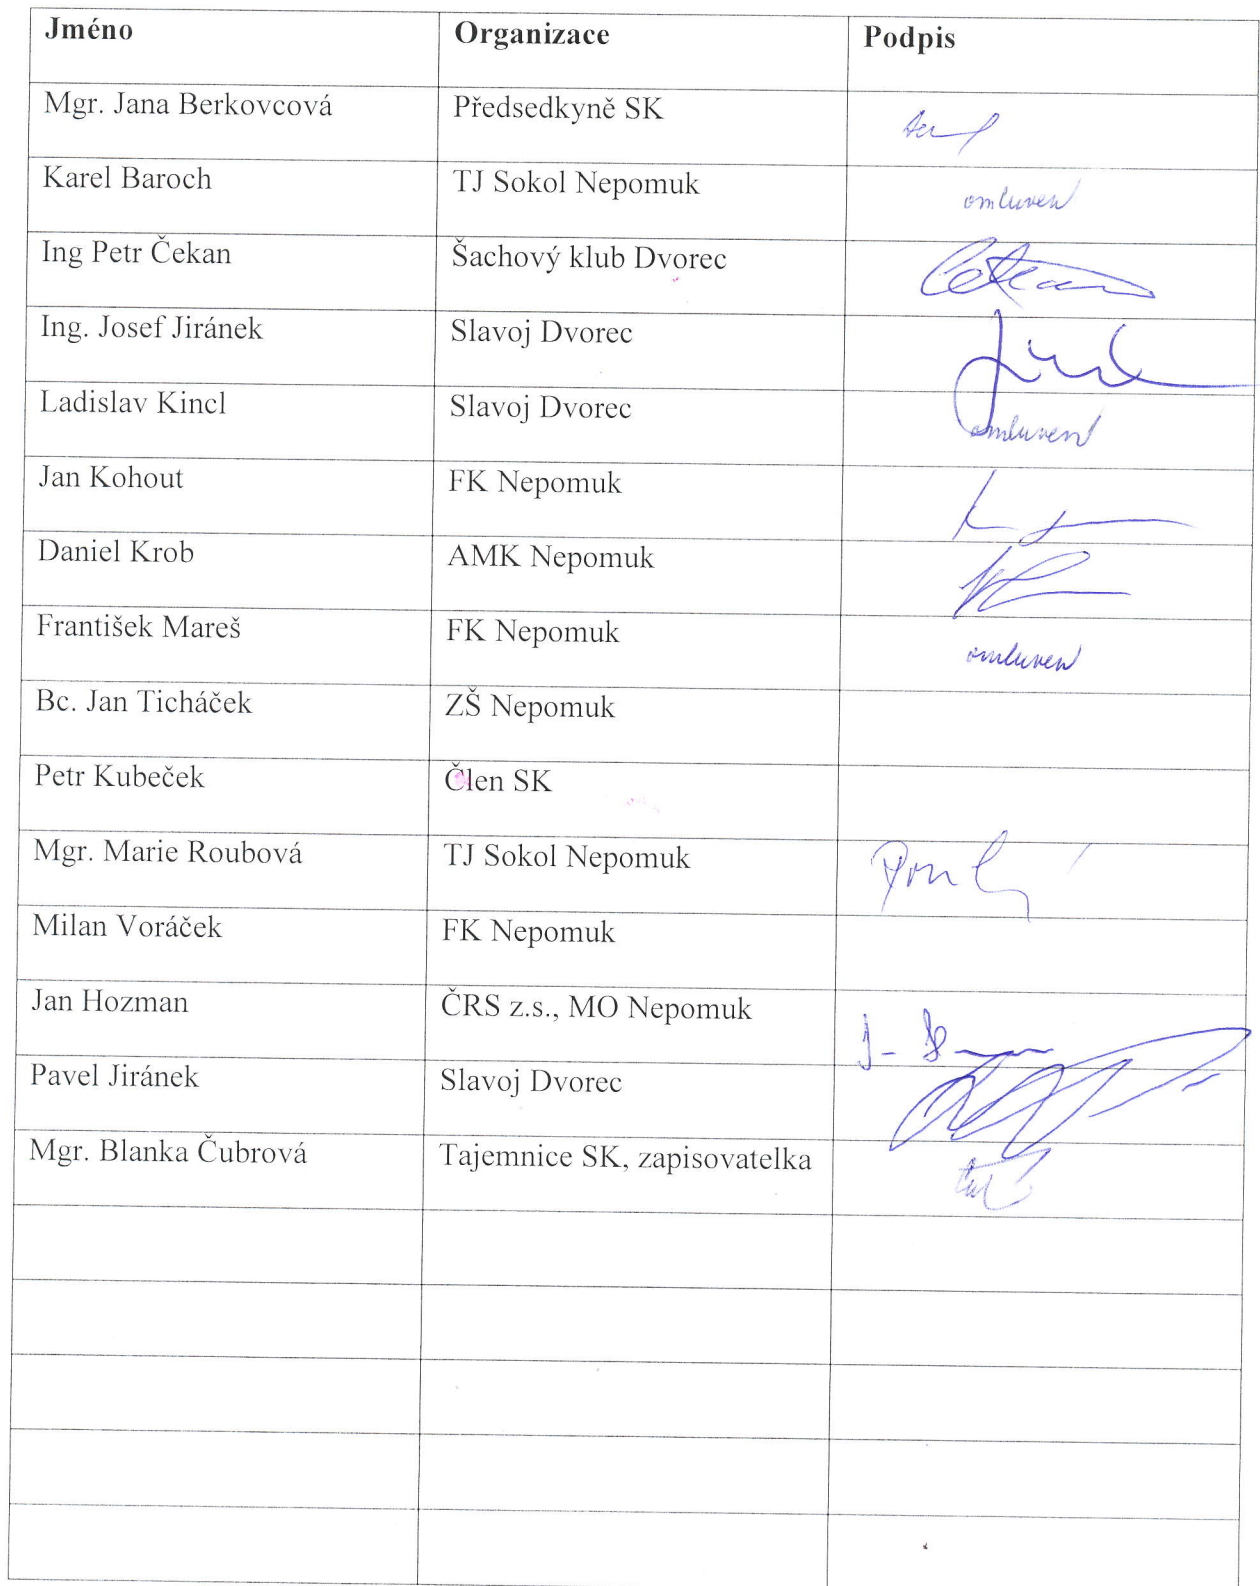 Jméno Organizace Podpis
Mgr. Jana Berkovcová Předsedkyně SK
Karel Baroch TJ Sokol Nepomuk omluven
Ing Petr Čekan Šachový klub Dvorec
Ing. Josef Jiránek Slavoj Dvorec
Ladislav Kincl Slavoj Dvorec omluven
Jan Kohout FK Nepomuk
Daniel Krob AMK Nepomuk
František Mareš FK Nepomuk omluven
Bc. Jan Ticháček ZŠ Nepomuk
Petr Kubeček Člen SK
Mgr. Marie Roubová TJ Sokol Nepomuk
Milan Voráček FK Nepomuk
Jan Hozman ČRS z.s., MO Nepomuk
Pavel Jiránek Slavoj Dvorec
Mgr. Blanka Čubrová Tajemnice SK, zapisovatelka